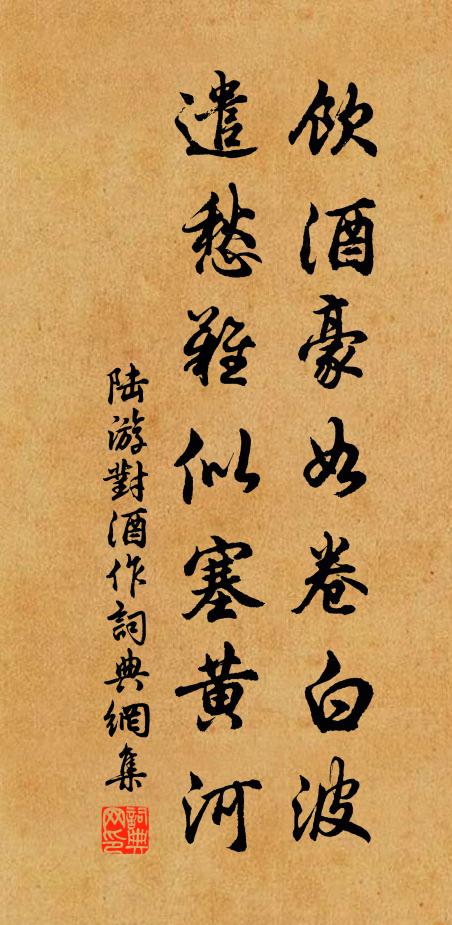 飲酒豪如卷白波
遣愁難似塞黄河
陆游對酒作詞典網集
詞典網印